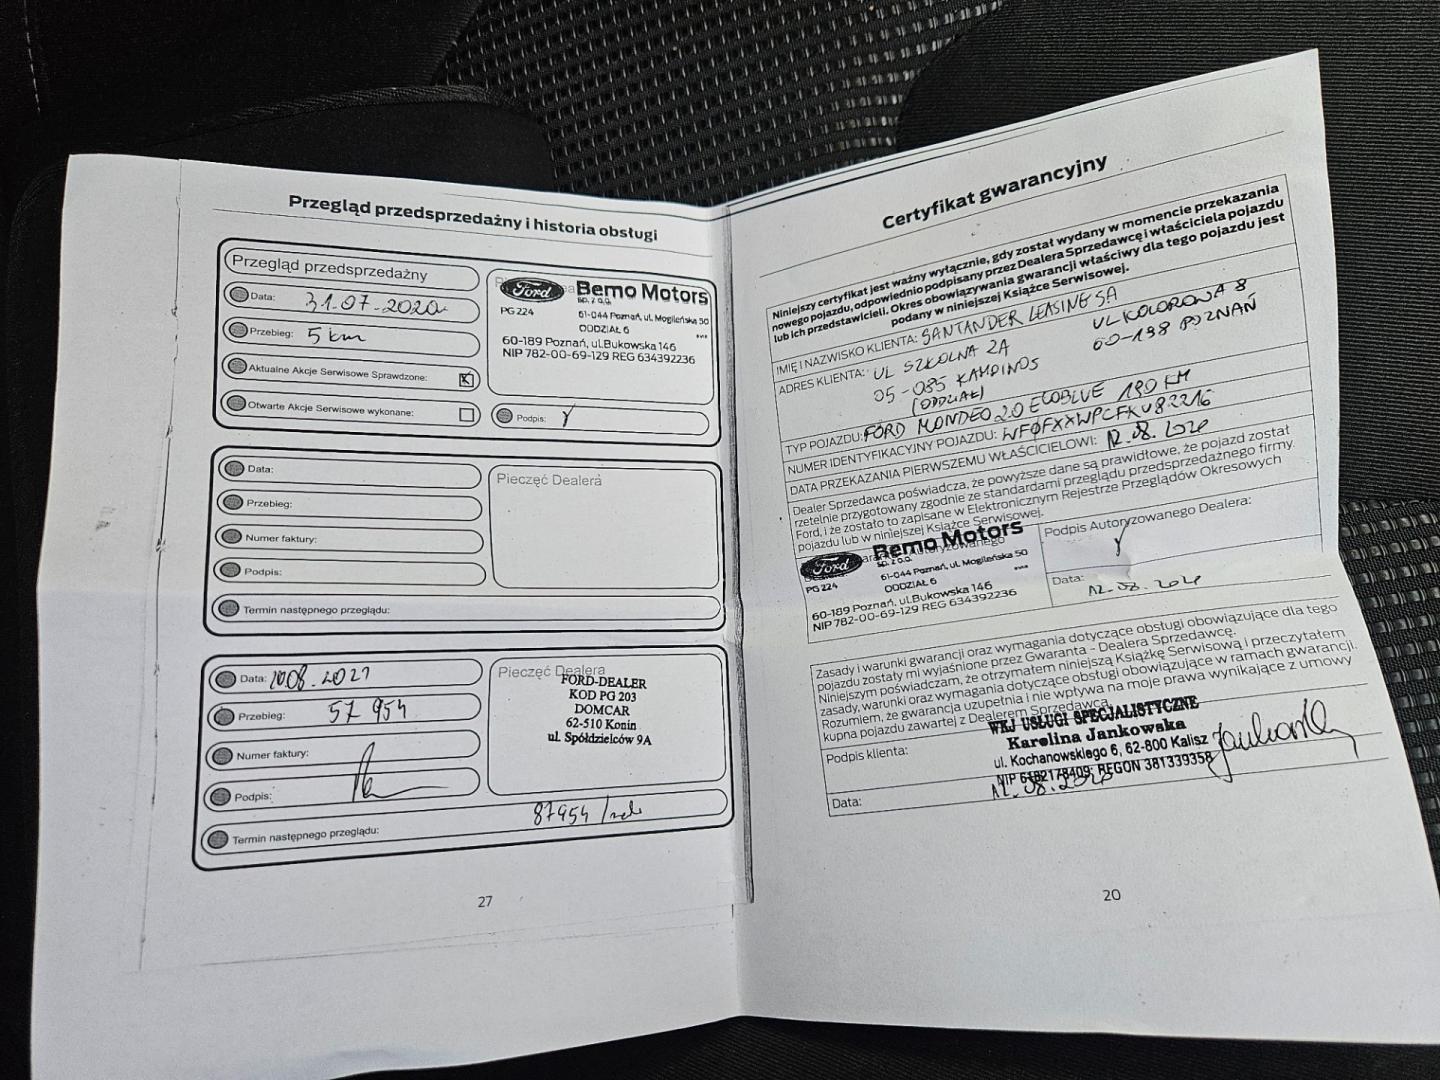 Przegląd przedsprzedażny i historia obsługi
Przegląd przedsprzedażny
Data: 31.07.2020
Przebieg: 5 km
Aktualne Akcje Serwisowe Sprawdzone: X
Otwarte Akcje Serwisowe wykonane:
Ford Bemo Motors
sp. z o.o.
PG 224
61-044 Poznań, ul. Mogileńska 50
ODDZIAŁ 6
60-189 Poznań, ul.Bukowska 146
NIP 782-00-69-129 REG 634392236
Podpis:
Data:
Przebieg:
Numer faktury:
Podpis:
Termin następnego przeglądu:
Pieczęć Dealera
Data: .08.2021
Przebieg: 57 954
Numer faktury:
Podpis:
Termin następnego przeglądu: 87954 /
Pieczęć Dealera
FORD-DEALER
KOD PG 203
DOMCAR
62-510 Konin
ul. Spółdzielców 9A
27
Certyfikat gwarancyjny
Niniejszy certyfikat jest ważny wyłącznie, gdy został wydany w momencie przekazania
nowego pojazdu, odpowiednio podpisany przez Dealera Sprzedawcę i właściciela pojazdu
lub ich przedstawicieli. Okres obowiązywania gwarancji właściwy dla tego pojazdu jest
podany w niniejszej Książce Serwisowej.
IMIĘ I NAZWISKO KLIENTA: SANTANDER LEASING SA
ADRES KLIENTA: UL SZKOLNA 2A UL KOLOROWA 8
05-085 KAMPINOS 60-198 POZNAŃ
(ODDZIAŁ)
TYP POJAZDU: FORD MONDEO 2.0 ECOBLUE 190 KM
NUMER IDENTYFIKACYJNY POJAZDU: WF0FXXWPCFKU82216
DATA PRZEKAZANIA PIERWSZEMU WŁAŚCICIELOWI: 12.08.2020
Dealer Sprzedawca poświadcza, że powyższe dane są prawidłowe, że pojazd został
rzetelnie przygotowany zgodnie ze standardami przeglądu przedsprzedażnego firmy
Ford, i że zostało to zapisane w Elektronicznym Rejestrze Przeglądów Okresowych
pojazdu lub w niniejszej Książce Serwisowej.
Ford Bemo Motors
sp. z o.o.
PG 224
61-044 Poznań, ul. Mogileńska 50
ODDZIAŁ 6
60-189 Poznań, ul.Bukowska 146
NIP 782-00-69-129 REG 634392236
Podpis Autoryzowanego Dealera:
Data: 12.08.2020
Zasady i warunki gwarancji oraz wymagania dotyczące obsługi obowiązujące dla tego
pojazdu zostały mi wyjaśnione przez Gwaranta - Dealera Sprzedawcę.
Niniejszym poświadczam, że otrzymałem niniejszą Książkę Serwisową i przeczytałem
zasady, warunki oraz wymagania dotyczące obsługi obowiązujące w ramach gwarancji.
Rozumiem, że gwarancja uzupełnia i nie wpływa na moje prawa wynikające z umowy
kupna pojazdu zawartej z Dealerem Sprzedawcą.
Podpis klienta:
WKJ USŁUGI SPECJALISTYCZNE
Karolina Jankowska
ul. Kochanowskiego 6, 62-800 Kalisz
NIP 6182178409; REGON 381339358
Data: 12.08.2020
20